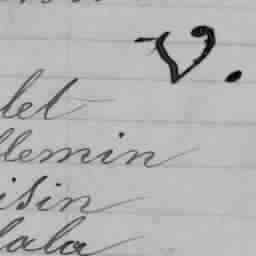 V.
let
llemin
isin
lala